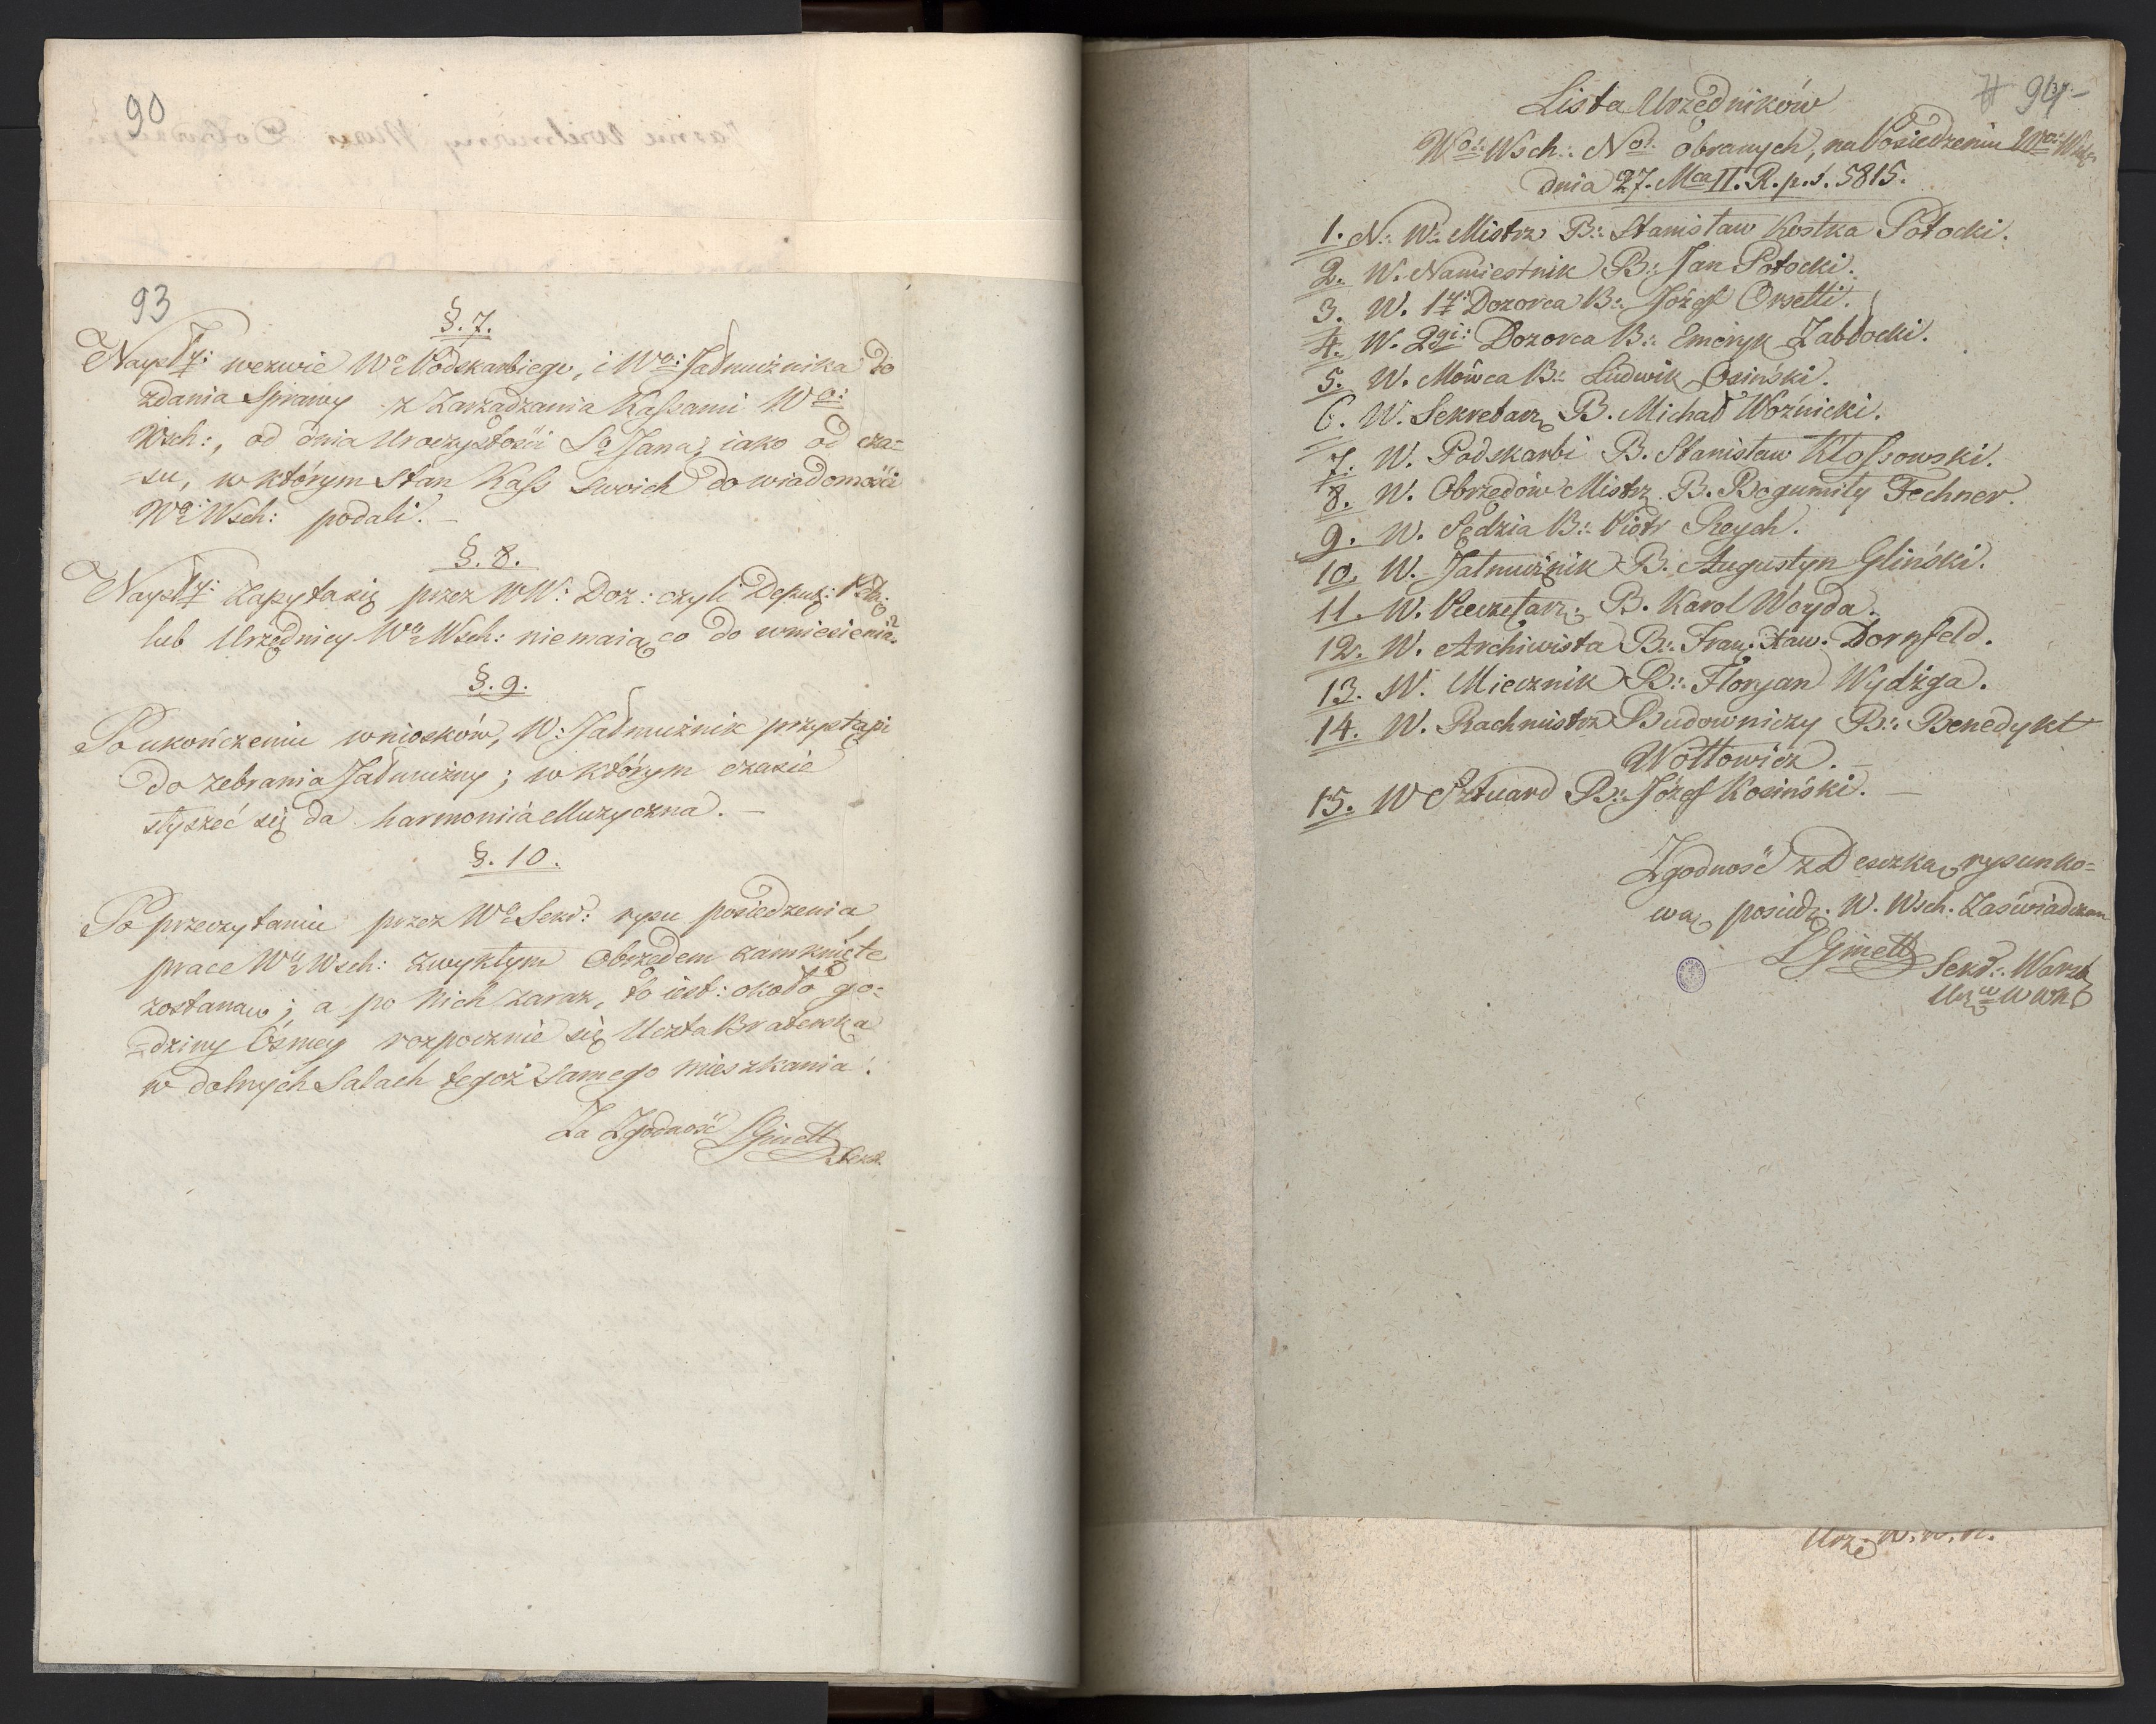 90
93
§. 7.
Nayśły: wezwie Wo Podskarbiego, i Wo: Jałmużnika do
zdania Sprawy z Zarządzania Kassami Wgo:
Wsch:, od dnia Uroczystości Sgo Jana, iako od cza=
=su, w którym Stan Kass swoich do wiadomości
Wgo Wsch: podali. –
§. 8.
Nayśły: Zapyta się przez WW: Doz: czyli Deput:
lub Urzędnicy Wo Wsch: niemaią co do wniesienia?
§. 9.
Po ukończeniu wniosków, W: Jałmużnik przystąpi
do zebrania Jałmużny; w którym czasie
słyszeć się da harmoniia Muzyczna. –
§. 10.
Po przeczytaniu przez Wo Sekr: rysu posiedzenia
prace Wo Wsch: zwykłym Obrzędem zamknięte
zostaną; a po Nich zaraz, to iest: około go=
=dziny Ósmey rozpocznie się Uczta Braterska
w dolnych Salach tegoż samego mieszkania.
Za Zgodność LGinett
Sekr.
94
Lista Urzędników
Wo: Wsch: No: obranych, na Posiedzeniu Wo:
dnia 27. Mca II. R. p. ś. 5815.
1. N: W: Mistrz B: Stanisław Kostka Potocki.
2. W. Namiestnik B: Jan Potocki.
3. W. 1y: Dozorca B: Józef Orsetti.
4. W. 2gi: Dozorca B: Emeryk Zabłocki.
5. W. Mówca B: Ludwik Osiński.
6. W. Sekretarz B. Michał Woźnicki.
7. W. Podskarbi B. Stanisław Kłossowski.
8. W. Obrzędów Mistrz B. Bogumiły Fechner.
9. W. Sędzia B: Piotr Reych.
10. W. Jałmużnik B. Augustyn Gliński.
11. W. Pieczętarz B. Karol Woyda.
12. W. Archiwista B: Fran: Xaw: Dornfeld.
13. W. Miecznik B: Floryan Wydżga.
14. W. Rachmistrz Budowniczy B: Benedykt
Wołłowicz. –
15. W Sztuard B: Józef Kosiński. –
Zgodność z Deszką rysunko=
wą posiedz. W. Wsch. Zaświadczam
LGinett Sekr:
Urz: W. W. N.